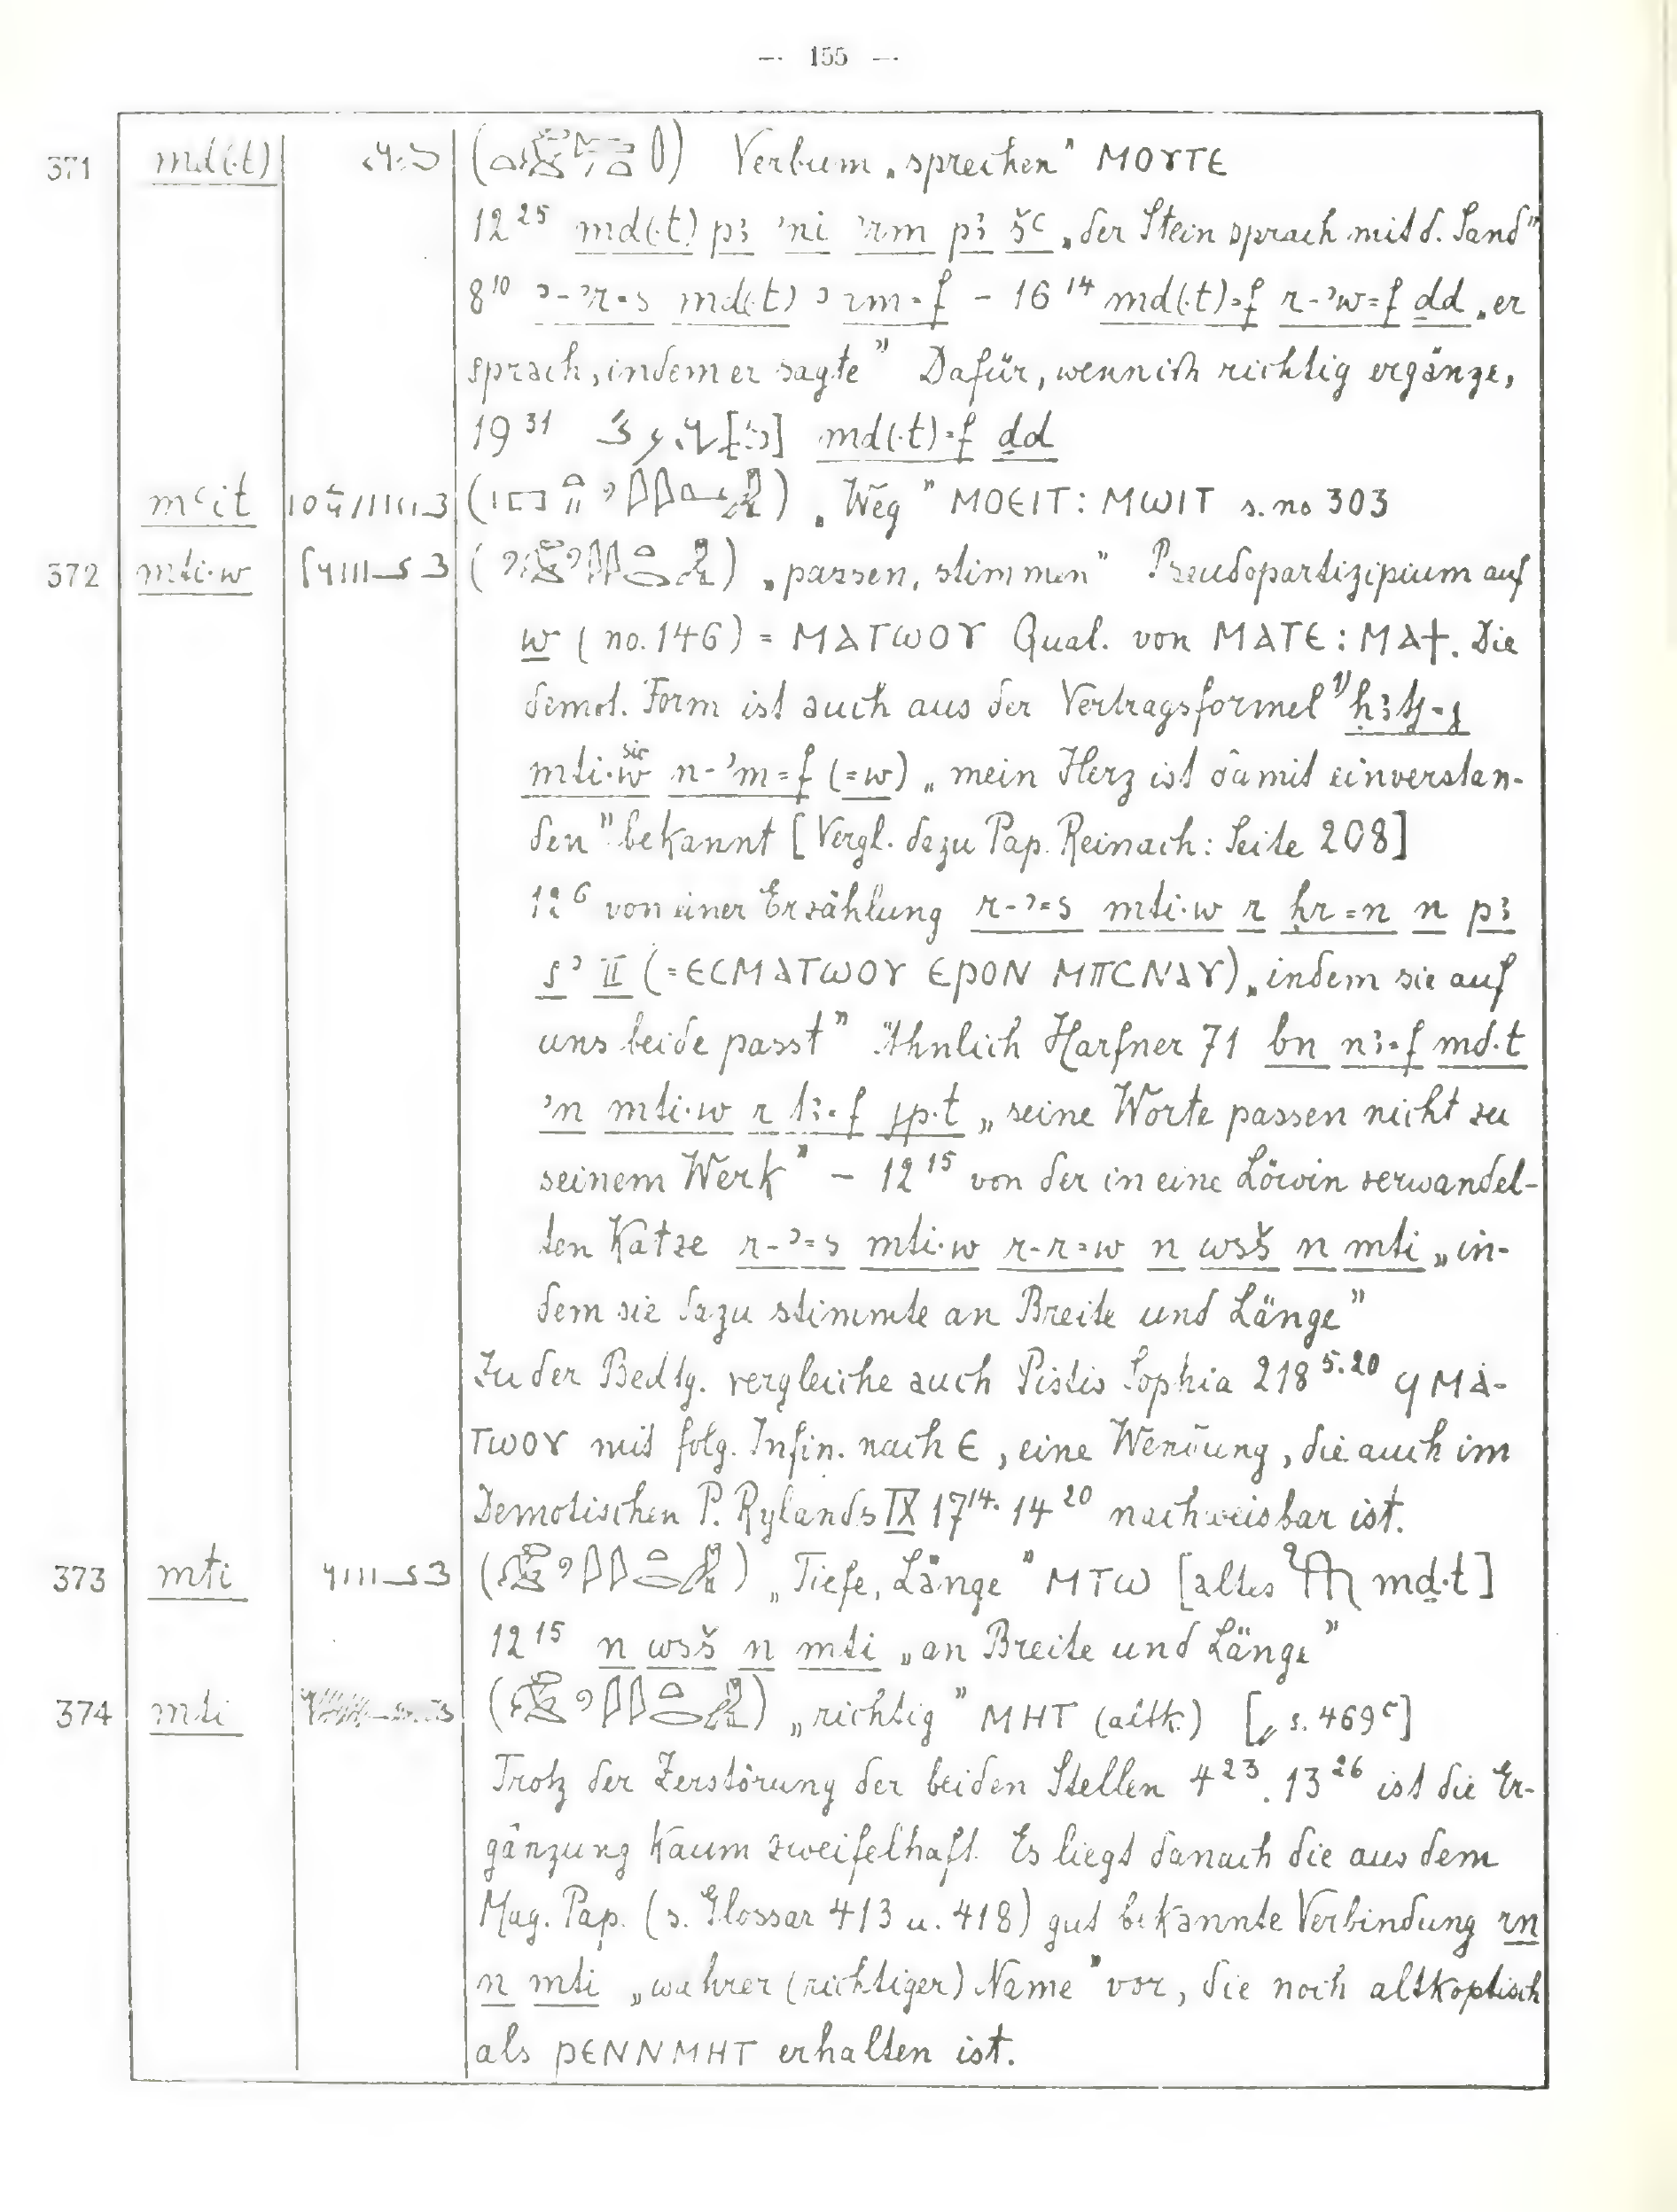 — 155 —
371 md(·t) ( ) Verbum „sprechen" ⲙⲟⲩⲧⲉ
12²⁵ md(·t) pꜣ ʾni ʾrm pꜣ šꜥ „der Stein sprach mit d. Sand"
8¹⁰ ʾ-ʾr=s md(·t) ʾrm=f – 16¹⁴ md(·t)=f r-ʾw=f ḏd „er
sprach, indem er sagte" Dafür, wenn ich richtig ergänze,
19³¹ md(·t)=f ḏd
mꜥit ( ) „Weg" ⲙⲟⲉⲓⲧ: ⲙⲱⲓⲧ s. no 303
372 mti·w ( ) „passen, stimmen" Pseudopartizipium auf
w (no. 146) = ⲙⲁⲧⲱⲟⲩ Qual. von ⲙⲁⲧⲉ: ⲙⲁϯ. Die
demot. Form ist auch aus der Vertragsformel ¹⁾
mti·w (sic) n-ʾm=f (=w) „mein Herz ist damit einverstan-
den" bekannt [Vergl. dazu Pap. Reinach: Seite 208]
12⁶ von einer Erzählung r-ʾ=s mti·w r ḥr=n n pꜣ
sʾ II (=ⲉⲥⲙⲁⲧⲱⲟⲩ ⲉⲣⲟⲛ ⲙⲡⲥⲛⲁⲩ) „indem sie auf
uns beide passt" Ähnlich Harfner 71 bn nꜣ=f md·t
ʾn mti·w r tꜣ=f „seine Worte passen nicht zu
seinem Werk" – 12¹⁵ von der in eine Löwin verwandel-
ten Katze r-ʾ=s mti·w r-r=w n wsš n mti „in-
dem sie dazu stimmte an Breite und Länge"
Zu der Bedtg. vergleiche auch Pistis Sophia 218⁵·²⁰ ϥⲙⲁ-
ⲧⲱⲟⲩ mit folg. Infin. nach ⲉ, eine Wendung, die auch im
Demotischen P. Rylands IX 17¹⁴· 14²⁰ nachweisbar ist.
373 mti ( ) „Tiefe, Länge" ⲙⲧⲱ [altes mḏ·t]
12¹⁵ n wsš n mti „an Breite und Länge"
374 mti ( ) „richtig" ⲙⲏⲧ (altk.) [„ s. 469ᶜ]
Trotz der Zerstörung der beiden Stellen 4²³. 13²⁶ ist die Er-
gänzung kaum zweifelhaft. Es liegt danach die aus dem
Mag. Pap. (s. Glossar 413 u. 418) gut bekannte Verbindung rn
n mti „wahrer (richtiger) Name" vor, die noch altkoptisch
als ⲣⲉⲛⲛⲙⲏⲧ erhalten ist.